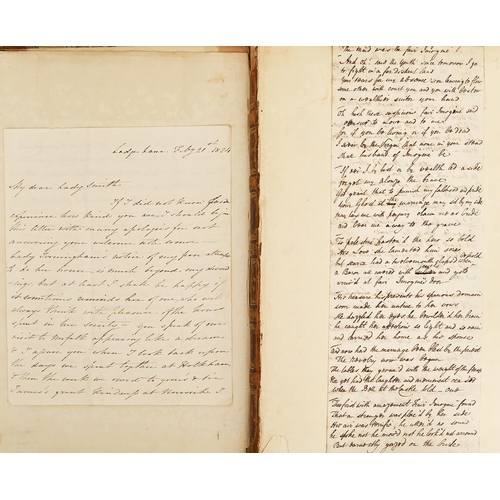 Lady Lane Feby 21st 1834
My dear Lady Smith
If I did not know from
experience how kind you are, I should begin
this letter with many apologies for not
answering your welcome note sooner.
Lady wishes of my poor
to do her honor is much beyond my
but at least I shall be happy if
it sometimes reminds her of one who will
always think with pleasure of the hours
spent in her society - You speak of our
visit to Norfolk appearing like a dream
& I assure you when I look back upon
the days we spent together at Holkham
then the week we owed to yours & Sir
James's great kindness at I
the maid was the fair Imogine!
And oh! said the Youth since tomorrow I go
to fight in a far distant land
Your tears for my absence soon leaving to flow
some other will court you and you will bestow
on a wealthier suitor your hand
Oh hush these suspicions fair Imogine said
to Love and to me
for if you be living or if you be dead
I swear by the Virgin that none in your stead
shall husband of Imogine be
If e'er I by lust or by wealth led aside
forget my Alonzo the brave
God grant that to punish my falsehood and pride
your Ghost at the marriage may sit by my side
may tax me with perjury claim me as bride
and bear me away to the grave
To Palestine hasten'd the hero so bold
his Love she lamented him sore
but scarce had a twelvemonth elapsed when behold
a Baron all cover'd with and gold
arriv'd at fair Imogine's door
His treasure his presents his spacious domain
soon made her untrue to her vows
He dazzled her eyes he bewilder'd her brain
he caught her affections so light and so vain
and carried her home as his spouse
And now had the marriage been blest by the priest
The revelry now was begun
The tables they groan'd with the weight of the feast
Nor yet had the laughter and merriment ceas'd
when the Bell at the castle told - one
Then first with amazement Fair Imogine found
That a stranger was plac'd by her side
His air was terrific he utter'd no sound
he spoke not he mov'd not he look'd not around
But earnestly gazed on the bride